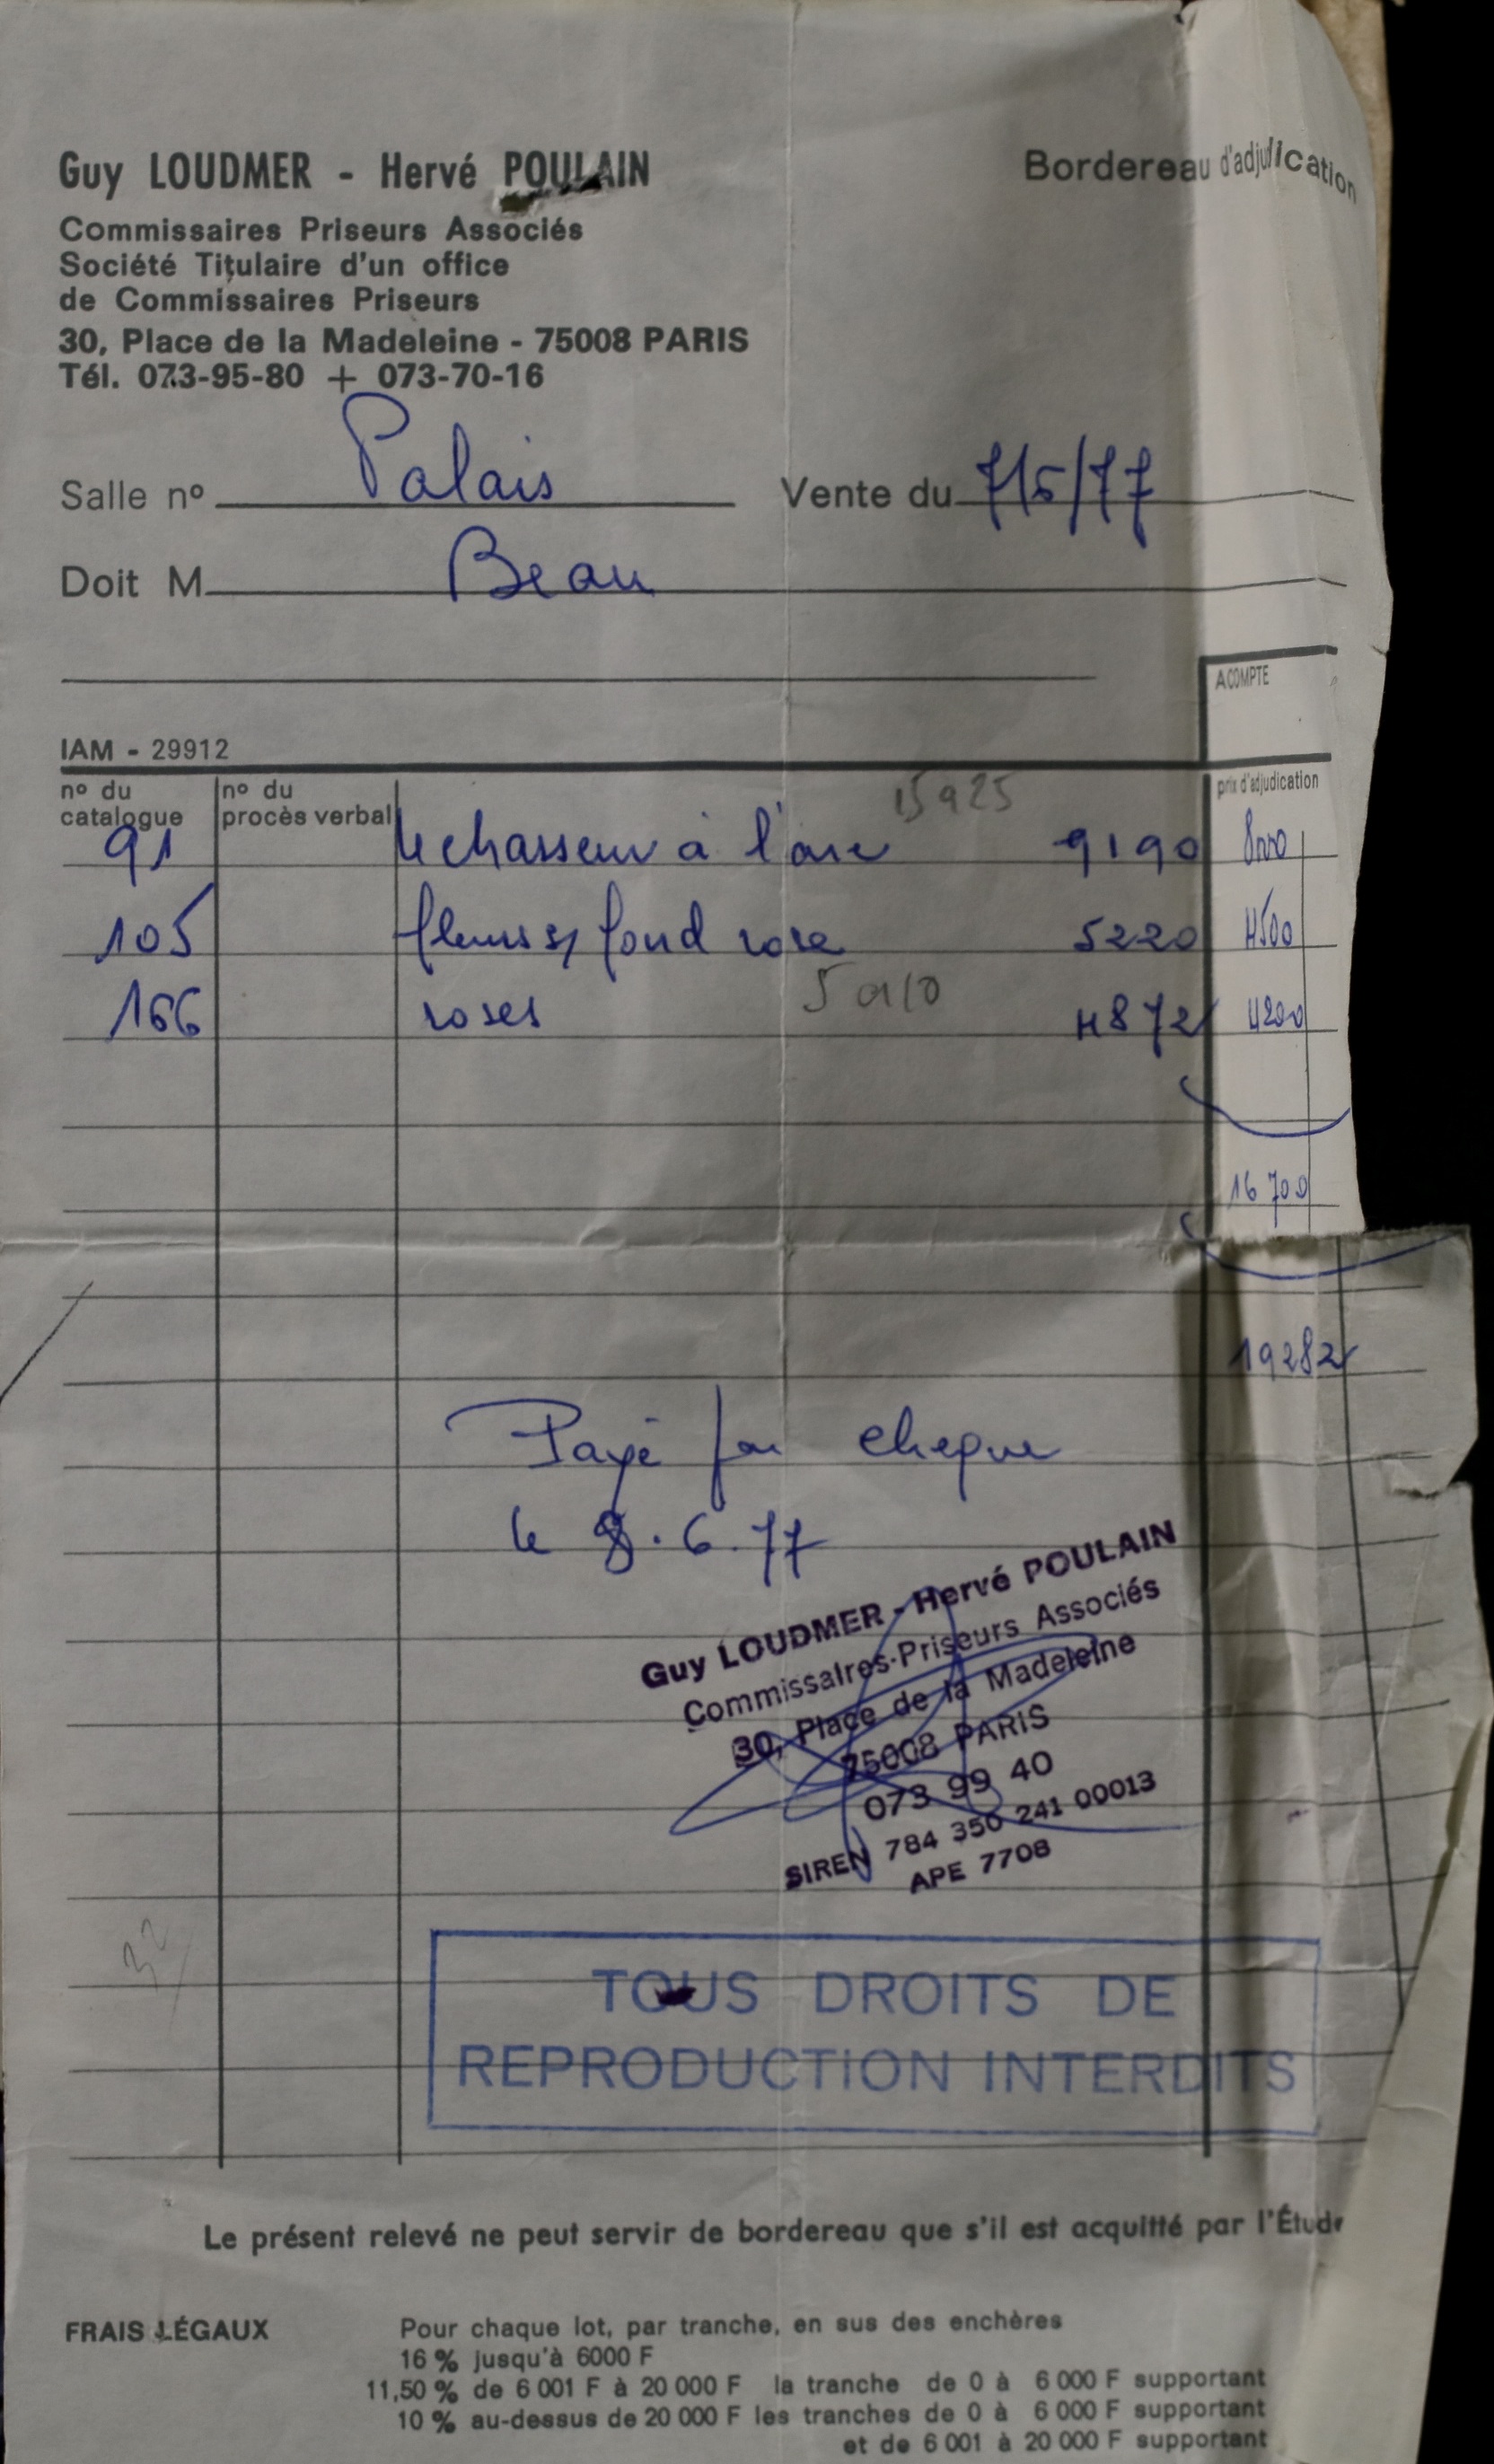 Guy LOUDMER - Hervé POULAIN
Bordereau d'adjudication
Commissaires Priseurs Associés
Société Titulaire d'un office
de Commissaires Priseurs
30, Place de la Madeleine - 75008 PARIS
Tél. 073-95-80 + 073-70-16
Salle nº Palais Vente du 7/5/77
Doit M Beau
ACOMPTE
IAM - 29912
nº du catalogue nº du procès verbal prix d'adjudication
15 à 25
91 le chasseur à l'arc 9190 8000
105 fleurs s/ fond rose 5220 4500
5 à 10
166 roses 4872 4200
16 700
19282
Payé par cheque
le 8.6.77
Guy LOUDMER - Hervé POULAIN
Commissaires-Priseurs Associés
30, Place de la Madeleine
75008 PARIS
073 99 40
SIREN 784 350 241 00013
APE 7708
32
TOUS DROITS DE
REPRODUCTION INTERDITS
Le présent relevé ne peut servir de bordereau que s'il est acquitté par l'Étude
FRAIS LÉGAUX Pour chaque lot, par tranche, en sus des enchères
16 % jusqu'à 6000 F
11,50 % de 6 001 F à 20 000 F la tranche de 0 à 6 000 F supportant
10 % au-dessus de 20 000 F les tranches de 0 à 6 000 F supportant
et de 6 001 à 20 000 F supportant